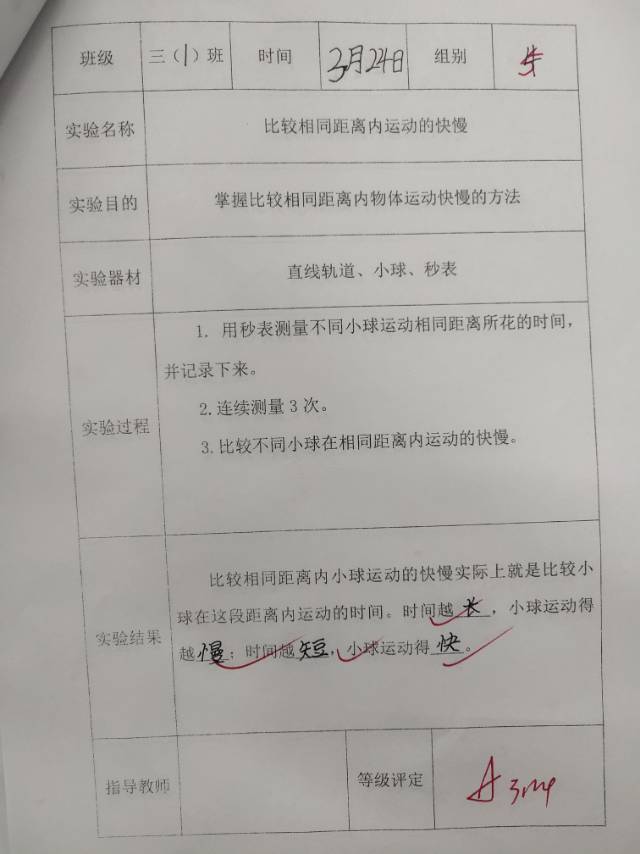 班级 三（1）班 时间 3月24日 组别
实验名称 比较相同距离内运动的快慢
实验目的 掌握比较相同距离内物体运动快慢的方法
实验器材 直线轨道、小球、秒表
实验过程
1. 用秒表测量不同小球运动相同距离所花的时间，
并记录下来。
2.连续测量3次。
3.比较不同小球在相同距离内运动的快慢。
实验结果
比较相同距离内小球运动的快慢实际上就是比较小
球在这段距离内运动的时间。时间越长，小球运动得
越慢；时间越短，小球运动得快。
指导教师 等级评定 A